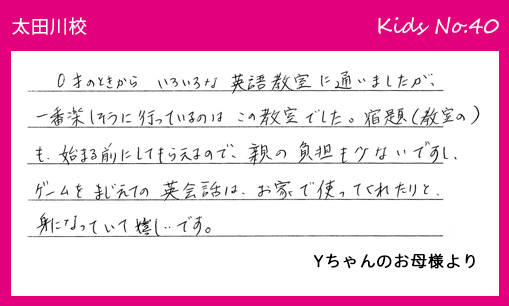 太田川校
Kids No.40
０才のときから いろいろな 英語教室に通いましたが、
一番楽しそうに行っているのは この教室でした。宿題(教室の)
も、始まる前にしてもらえるので、親の負担も少ないですし、
ゲームをまじえての 英会話は、お家で使ってくれたりと、
身になっていて嬉しいです。
Yちゃんのお母様より